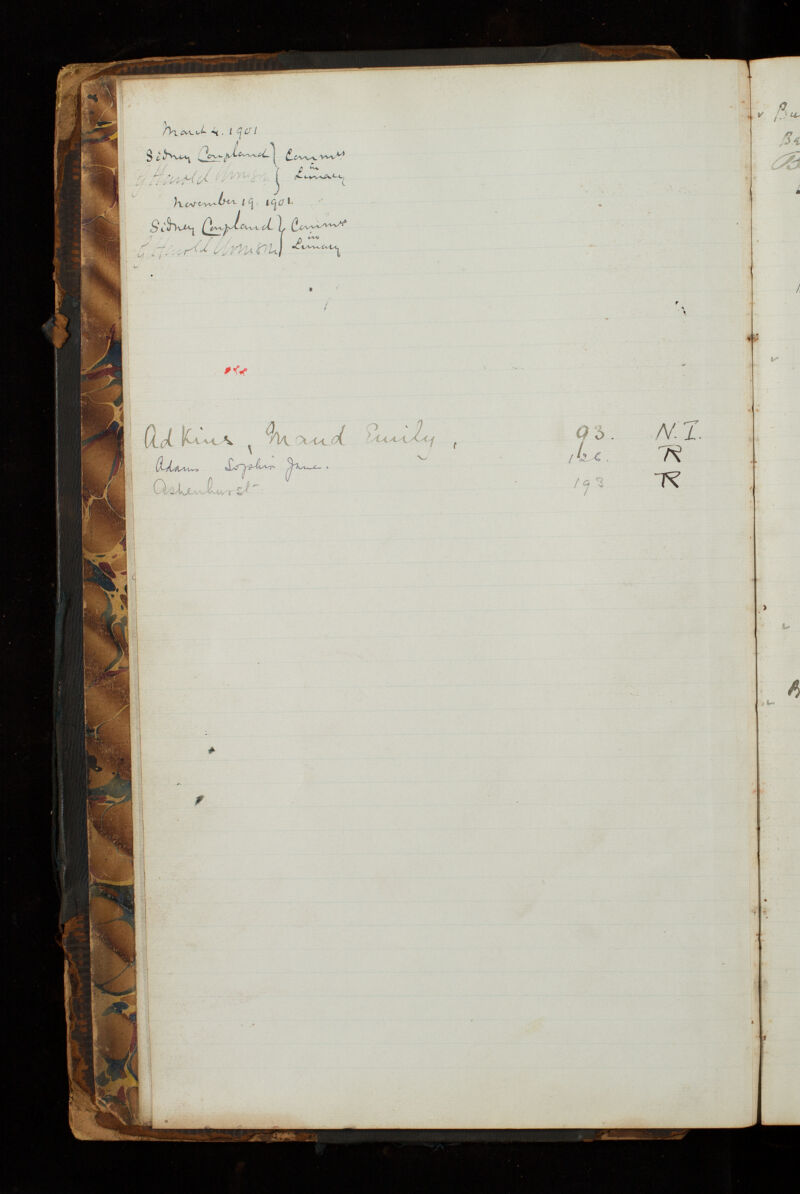 March 4. 1901
Sidney Coupland } Commrs
in
G Harold Urmson } Lunacy
November 19. 1901.
Sidney Coupland } Commrs
in
G Harold Urmson } Lunacy
Adkins, Maud Emily, 93. N.I.
Adams Sophia Jane. 126. R
Ashenhurst 193 R